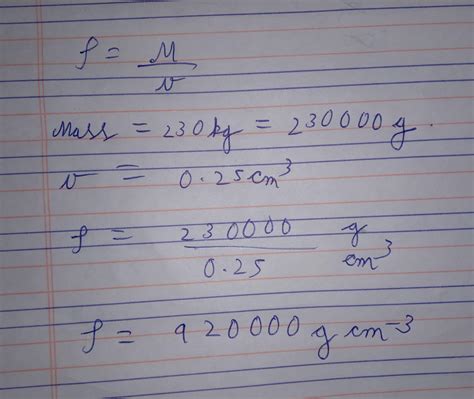 ρ = M / v
Mass = 230 kg = 230000 g.
v = 0.25 cm³
ρ = 230000 / 0.25 g / cm³
ρ = 920000 g cm⁻³